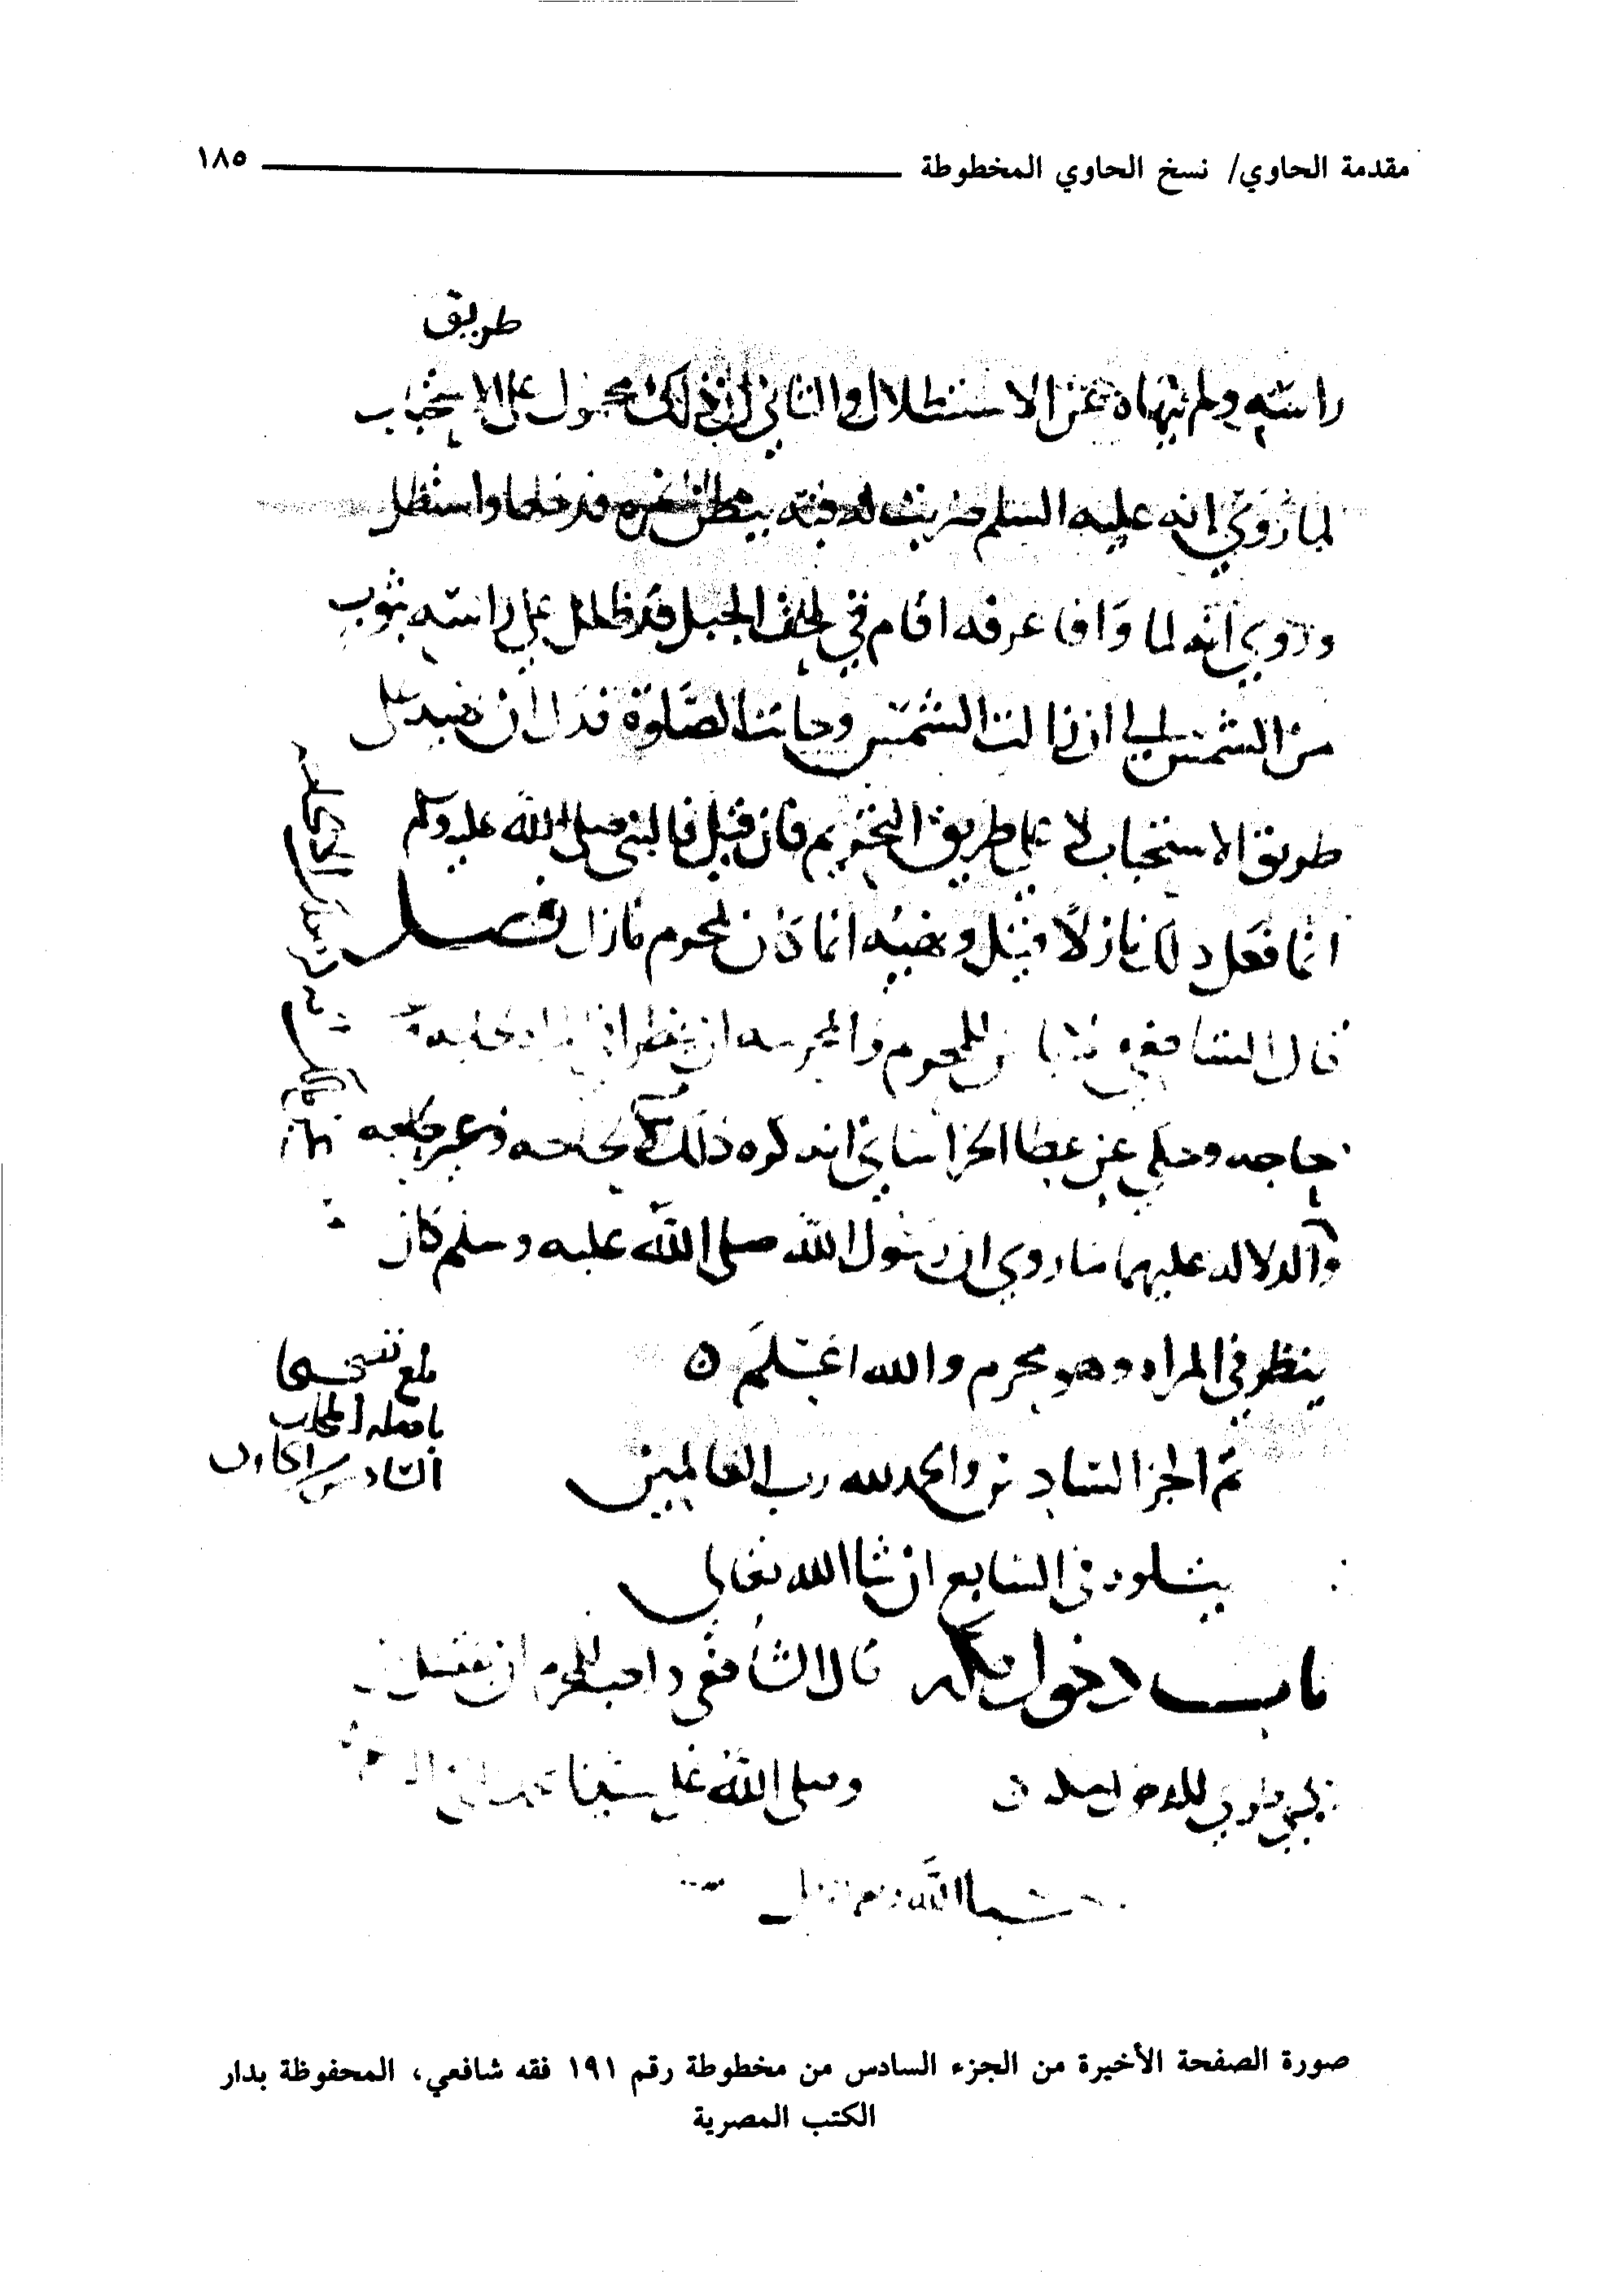 مقدمة الحاوي/ نسخ الحاوي المخطوطة ١٨٥
طريق
راسه ولم ينهاه عن الاستظلال والثاني ان ذلك محمول على الاستحباب
لما روي انه عليه السلم ضربت له قبه بنمره فدخلها واستظل
وروي انه لما وافا عرفه اقام في لحف الجبل قد ظلل على راسه بثوب
من الشمس الى ان زالت الشمس وحانت الصلوة فدل ان نهيه على
طريق الاستحباب لا على طريق التحريم فان قيل فالنبي صلى الله عليه وسلم
انما فعل ذلك نازلا قيل ونهيه انما كان لمحرم نازل فصل
قال الشافعي للمحرم والمحرمه ان ينظرا في
حاجه وحكي عن عطا الخراساني انه كره ذلك لحاجه وغير حاجه
والدلاله عليهما ما روي ان رسول الله صلى الله عليه وسلم كان
ينظر في المراه وهو محرم والله اعلم ٥
تم الجز السادس والحمد لله رب العالمين
يتلوه في السابع ان شا الله تعالى
باب دخول مكه قال الشافعي واحب للمحرم ان يغتسل
طوي للدخول مكه
وصلى الله على سيدنا محمد
حسبنا الله ونعم الوكيل
السادس الحاوي
صورة الصفحة الأخيرة من الجزء السادس من مخطوطة رقم ١٩١ فقه شافعي، المحفوظة بدار
الكتب المصرية